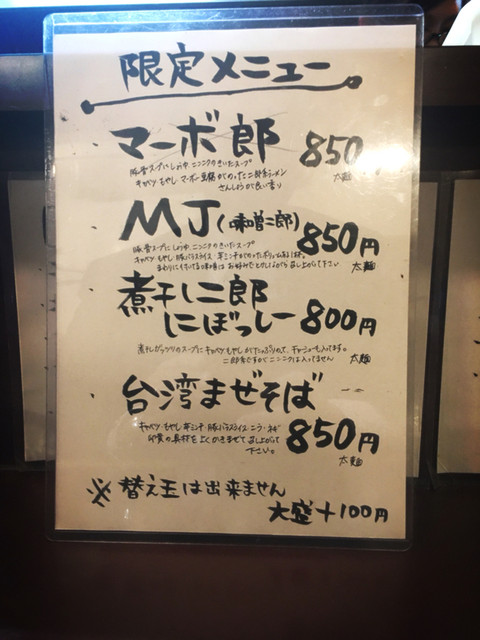 限定メニュー
マーボ郎 850
豚骨スープにしょうゆ、ニンニクのきいたスープ
キャベツ もやし マーボー豆腐がのった二郎系ラーメン
さんしょうが良い香り
太麺
MJ(味噌二郎) 850円
豚骨スープにしょうゆ、ニンニクのきいたスープ
キャベツ もやし 豚バラスライス・辛ミンチがのったボリュームある1杯。
まわりにそってる味噌は お好みでとかしながら 召し上がって下さい
太麺
煮干し二郎
にぼっしー 800円
煮干しガッツリのスープにキャベツ もやしがたっぷりのって、チャーシューも入ってます。
二郎系ですがニンニクは入ってません
太麺
台湾まぜそば
キャベツ もやし 辛ミンチ 豚バラスライス・ニラ・ネギ
卵黄の具材を よくかきまぜて 召し上がって
下さい。
850円
太麺
※ 替え玉は出来ません
大盛+100円